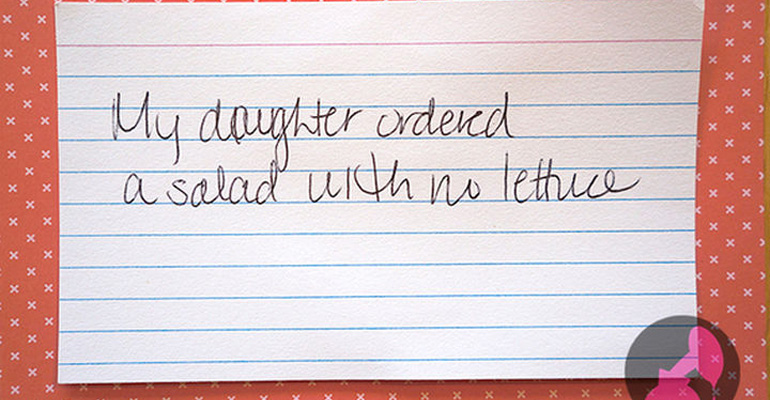 My daughter ordered
a salad with no lettuce